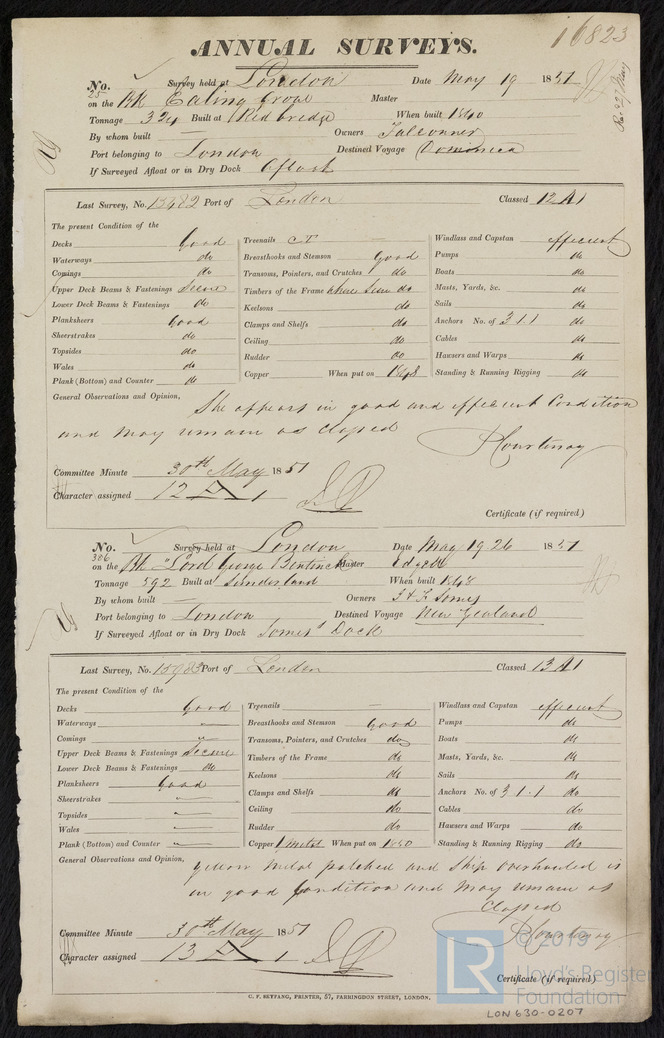 16823
ANNUAL SURVEYS.
No. 25 Survey held at London Date May 19 1851
Rec 27 May
on the Bk Ealing Grove Master
Tonnage 324 Built at Redbridge When built 1840
By whom built — Owners Falconner
Port belonging to London Destined Voyage Dominica
If Surveyed Afloat or in Dry Dock Afloat
Last Survey, No. 15482 Port of London Classed 12 A1
The present Condition of the
Decks Good
Waterways do
Comings do
Upper Deck Beams & Fastenings Secure
Lower Deck Beams & Fastenings do
Planksheers Good
Sheerstrakes do
Topsides do
Wales do
Plank (Bottom) and Counter do
Treenails
Breasthooks and Stemson Good
Transoms, Pointers, and Crutches do
Timbers of the Frame where seen do
Keelsons do
Clamps and Shelfs do
Ceiling do
Rudder do
Copper When put on 1848
Windlass and Capstan efficient
Pumps do
Boats do
Masts, Yards, &c. do
Sails do
Anchors No. of 3.1.1 do
Cables do
Hawsers and Warps do
Standing & Running Rigging do
General Observations and Opinion, She appears in good and efficient Condition
and may remain as Classed
Courtenay
Committee Minute 30th May 1851
Character assigned 12 A 1
Certificate (if required)
No. 386 Survey held at London Date May 19 26 1851
on the Bk "Lord George Bentinck" Master Edgell
Tonnage 592 Built at Sunderland When built 1848
By whom built — Owners J & F Somes
Port belonging to London Destined Voyage New Zealand
If Surveyed Afloat or in Dry Dock Somes' Dock
Last Survey, No. 15983 Port of London Classed 13 A1
The present Condition of the
Decks Good
Waterways —
Comings
Upper Deck Beams & Fastenings Secure
Lower Deck Beams & Fastenings do
Planksheers Good
Sheerstrakes —
Topsides —
Wales —
Plank (Bottom) and Counter —
Treenails —
Breasthooks and Stemson Good
Transoms, Pointers, and Crutches do
Timbers of the Frame do
Keelsons do
Clamps and Shelfs do
Ceiling do
Rudder do
Copper Y Metal When put on 1850
Windlass and Capstan efficient
Pumps do
Boats do
Masts, Yards, &c. do
Sails do
Anchors No. of 3.1.1 do
Cables do
Hawsers and Warps do
Standing & Running Rigging do
General Observations and Opinion, Yellow Metal patched and Ship overhauled is
in good Condition and may remain as
Classed
Courtenay
Committee Minute 30th May 1851
Character assigned 13 A 1
Certificate (if required)
C. F. SEYFANG, PRINTER, 57, FARRINGDON STREET, LONDON.
LR © 2019
Lloyd's Register
Foundation
LON 630-0207